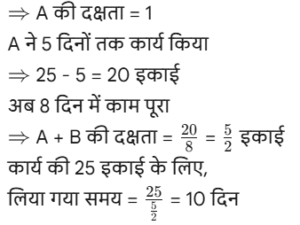 ⇒ A की दक्षता = 1
A ने 5 दिनों तक कार्य किया
⇒ 25 - 5 = 20 इकाई
अब 8 दिन में काम पूरा
⇒ A + B की दक्षता = 20/8 = 5/2 इकाई
कार्य की 25 इकाई के लिए,
लिया गया समय = 25/(5/2) = 10 दिन